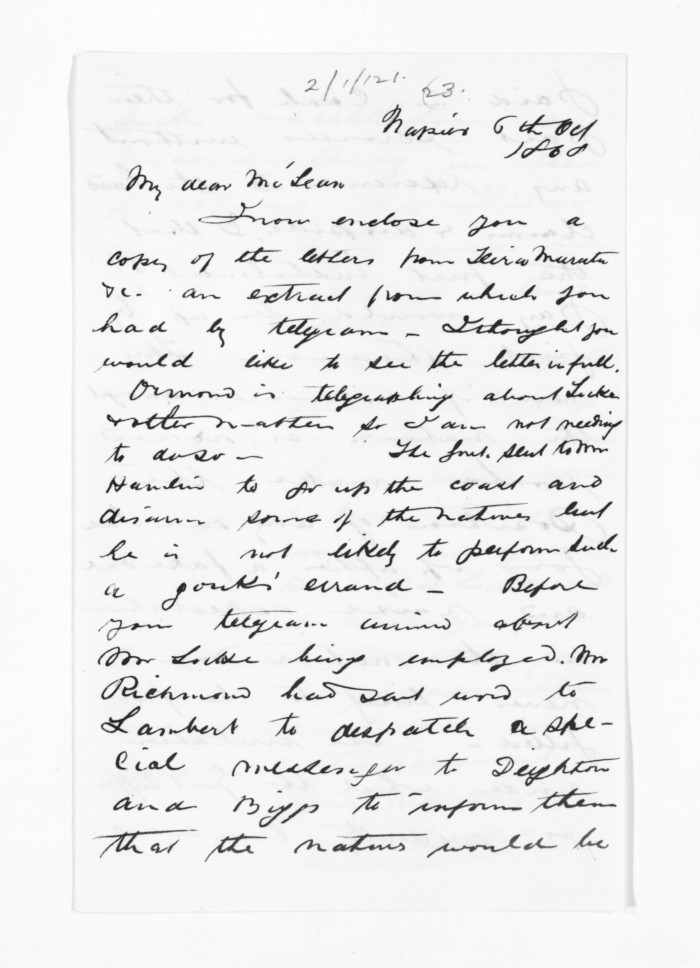 2/1/121. 23.
Napier 6th Oct
1868
My dear McLean
I now enclose you a
copy of the letters from
&c. an extract from which you
had by telegram – I thought you
would like to see the letter in full.
Ormond is telegraphing about Locke
& other matters so I am not needing
to do so – The Govt. sent to
Hamlin to go up the coast and
disarm some of the natives but
he is not likely to perform such
a gowk's errand – Before
your telegram arrived about
Mr Locke being employed. Mr
Richmond had sent word to
Lambert to despatch a spe-
cial messenger to Deighton
and Biggs to inform them
that the natives would be